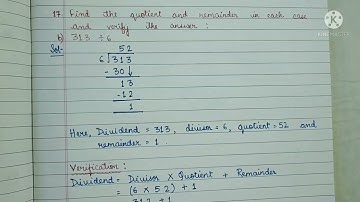 17. Find the quotient and remainder in each case
and verify the answer :
b) 313 ÷ 6
Sol-
52
6 313
- 30 ↓
13
- 12
1
Here, Dividend = 313, divisor = 6, quotient = 52 and
remainder = 1
Verification :
Dividend = Divisor X Quotient + Remainder
= (6 X 52) + 1
= 312 + 1